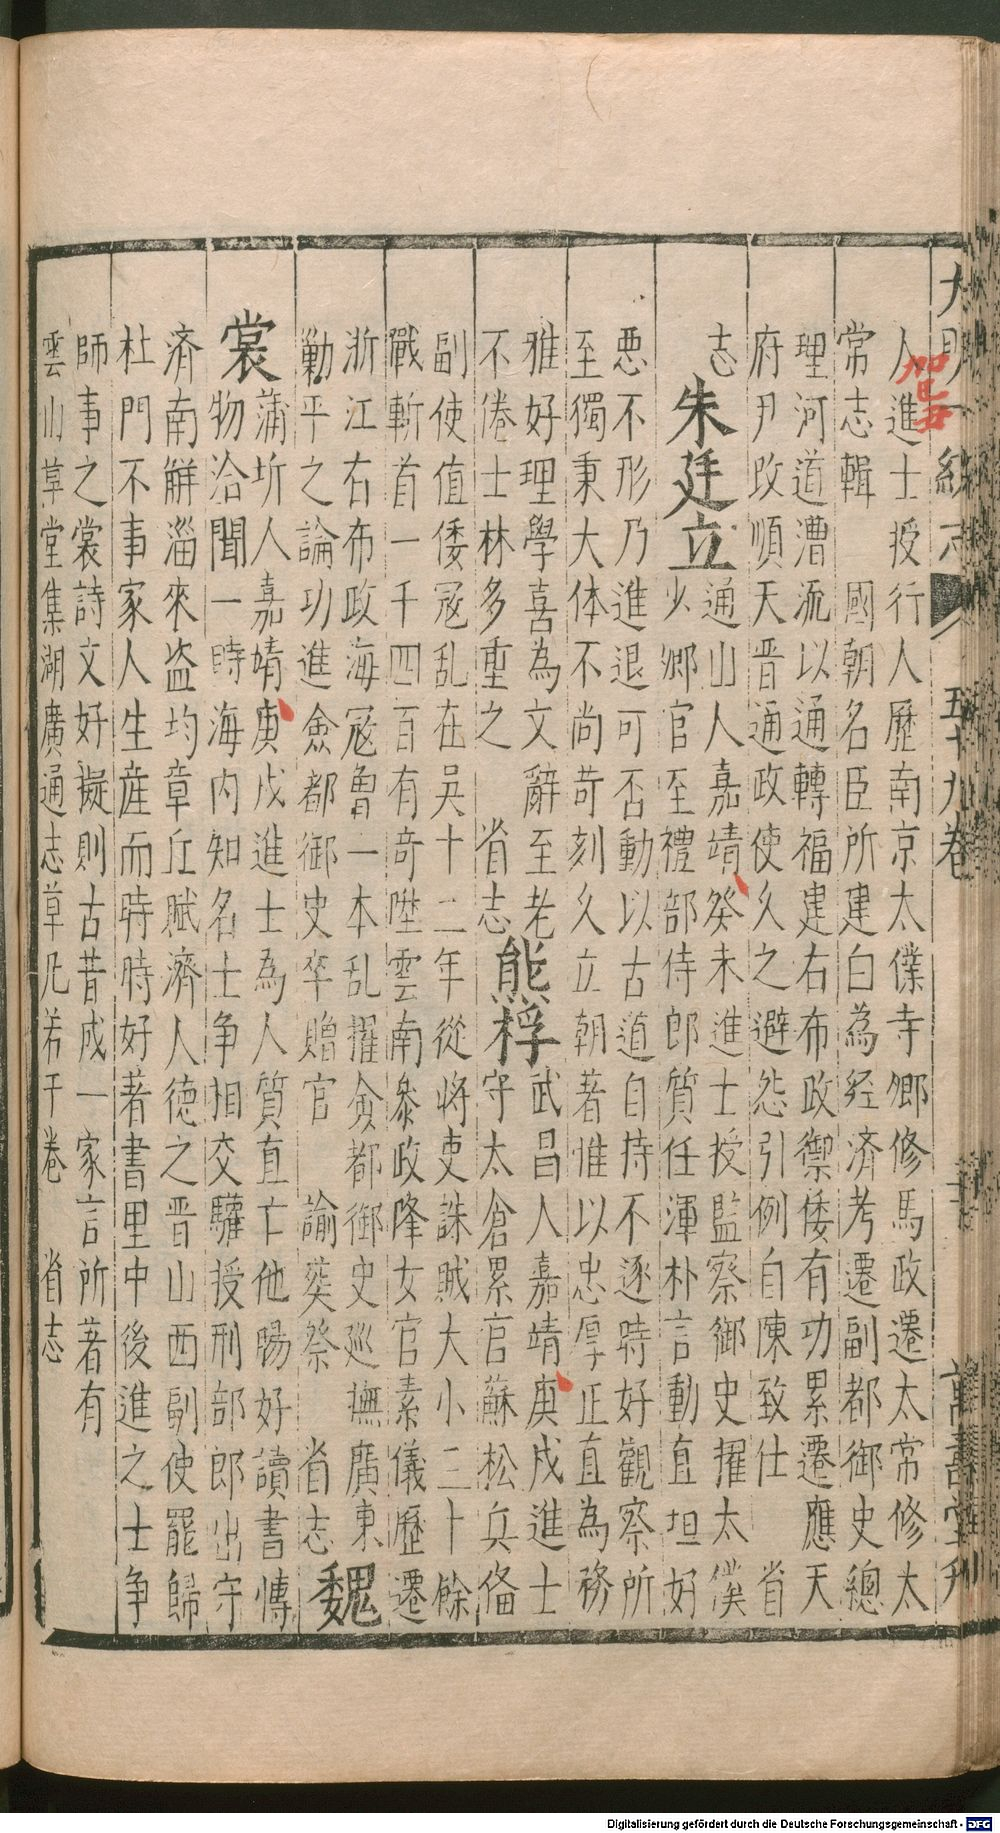 大明一統志 五十九卷 萬壽堂刊
人進士授行人歷南京太僕寺卿修馬政遷太常修太
常志輯　國朝名臣所建白為経濟考遷副都御史總
理河道漕流以通轉福建右布政禦倭有功累遷應天
府尹改順天晋通政使久之避怨引例自陳致仕　省
志
朱廷立
通山人嘉靖癸未進士授監察御史擢太僕
少卿官至禮部侍郎質任渾朴言動直坦好
惡不形乃進退可否動以古道自持不逐時好觀察所
至獨秉大体不尚苛刻久立朝著惟以忠厚正直為務
雅好理學喜為文辭至老
不倦士林多重之　省志
熊桴
武昌人嘉靖庚戌進士
守太倉累官蘇松兵俻
副使值倭冦乱在吴十二年從將吏誅賊大小二十餘
戰斬首一千四百有竒陞雲南叅政隆女官素儀歷遷
浙江右布政海冦曾一本乱擢僉都御史廵撫廣東
勦平之論功進僉都御史卒贈官　諭葵祭　省志
魏
裳
蒲圻人嘉靖庚戌進士為人質直亡他腸好讀書愽
物洽聞一時海内知名士争相交驩授刑部郎出守
済南觧淄來盗均章丘賦濟人德之晋山西副使罷歸
杜門不事家人生産而特時好著書里中後進之士争
師事之裳詩文好擬則古昔成一家言所著有
雲山草堂集湖廣通志草凡若干卷　省志
Digitalisierung gefördert durch die Deutsche Forschungsgemeinschaft - DFG